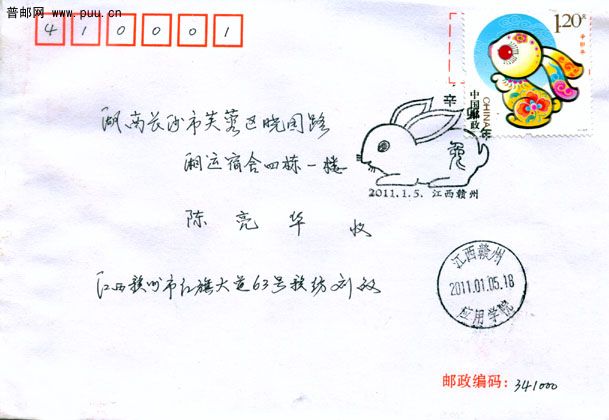 普邮网
www.puu.cn
410001
1.20元
辛卯年
中国邮政
CHINA
湖南长沙市芙蓉区晓园路
湘运宿舍四栋一楼
陈亮华 收
辛卯
兔
2011.1.5. 江西赣州
江西赣州市红旗大道63号赣纺刘敏
江西赣州
2011.01.05.18
应用学院
邮政编码: 341000